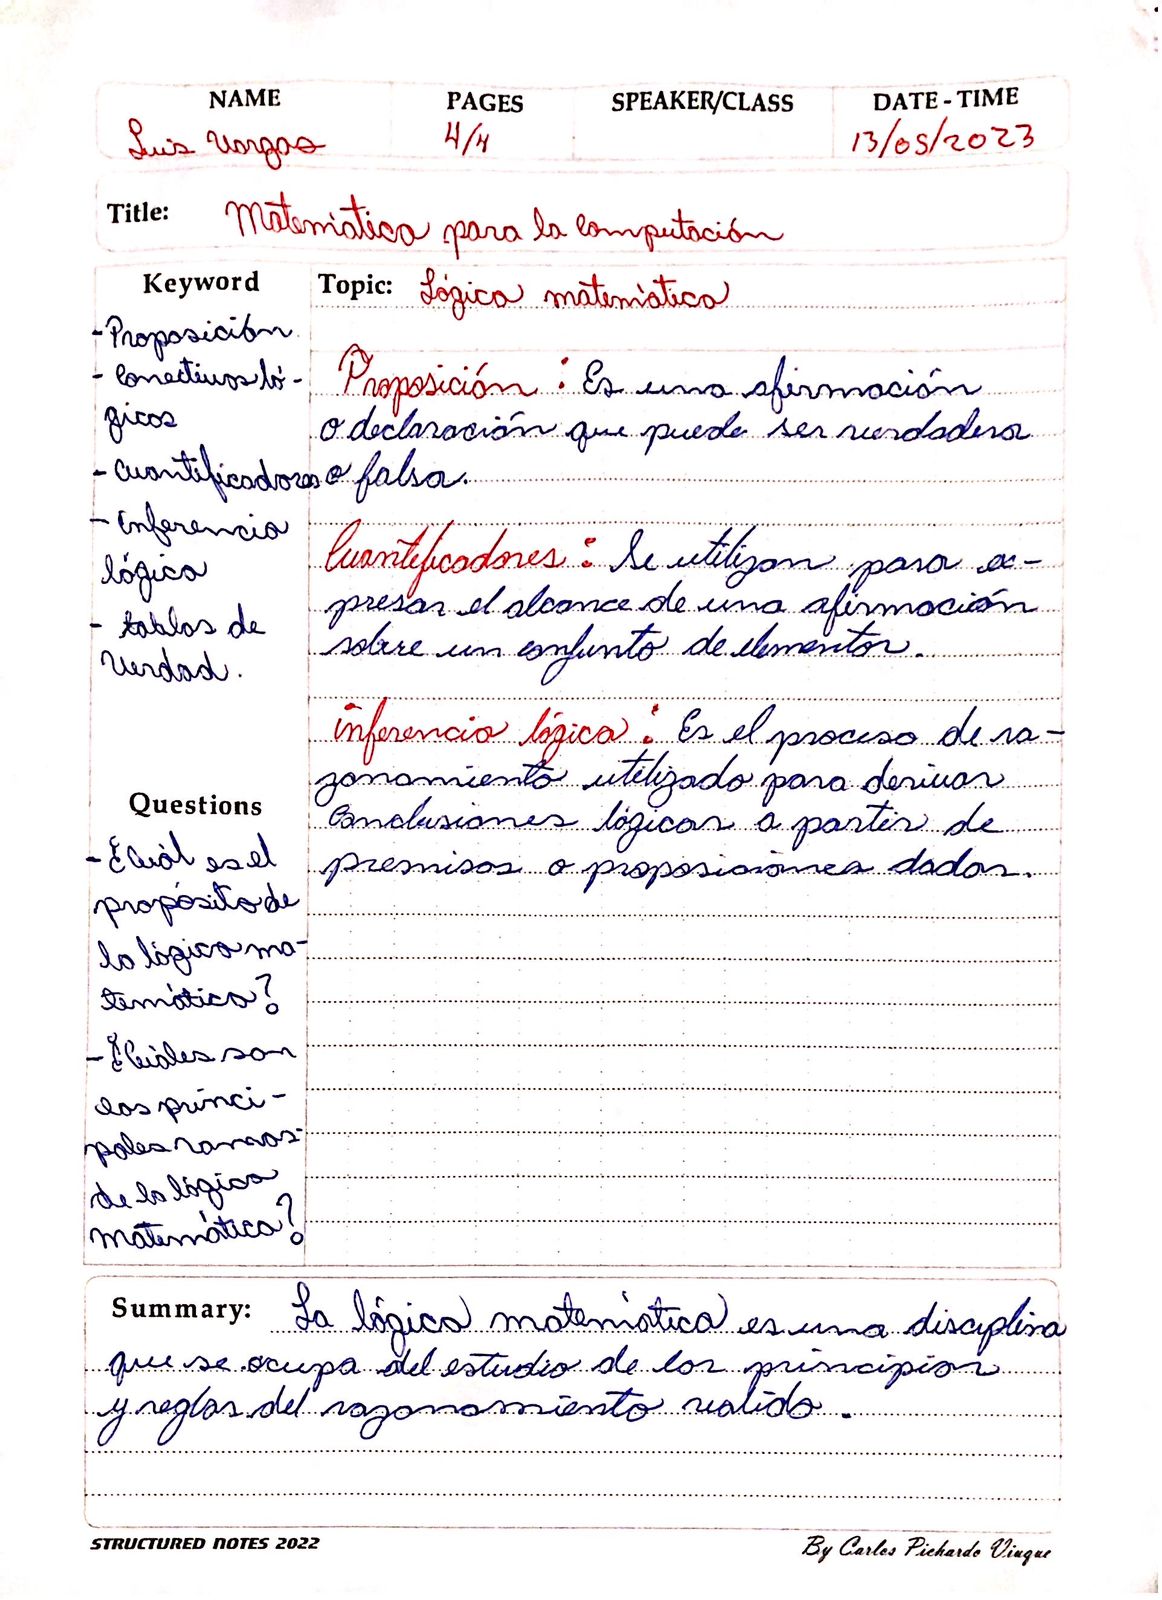 NAME PAGES SPEAKER/CLASS DATE - TIME
Luis Vargas 4/4 13/05/2023
Title: Matemática para la computación
Keyword
- Proposición
- Conectivos ló-
gicos
- Cuantificadores
- Inferencia
lógica
- tablas de
verdad.
Questions
- ¿Cuál es el
propósito de
la lógica ma-
temática?
- ¿Cuáles son
los princi-
pales ramas
de la lógica
matemática?
Topic: Lógica matemática
Proposición : Es una afirmación
o declaración que puede ser verdadera
o falsa.
Cuantificadores : Se utilizan para ex-
presar el alcance de una afirmación
sobre un conjunto de elementos.
inferencia lógica : Es el proceso de ra-
zonamiento utilizado para derivar
conclusiones lógicas a partir de
premisas o proposiciones dadas.
Summary: La lógica matemática es una disciplina
que se ocupa del estudio de los principios
y reglas del razonamiento valido.
STRUCTURED NOTES 2022 By Carlos Pichardo Viuque